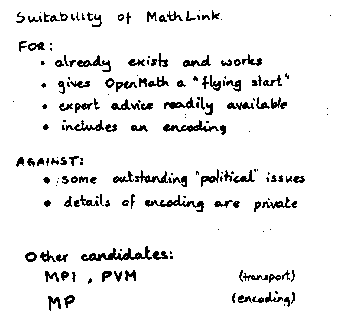 Suitability of MathLink.
FOR:
• already exists and works
• gives OpenMath a "flying start"
• expert advice readily available
• includes an encoding
AGAINST:
• some outstanding "political" issues
• details of encoding are private
Other candidates:
MPI, PVM (transport)
MP (encoding)